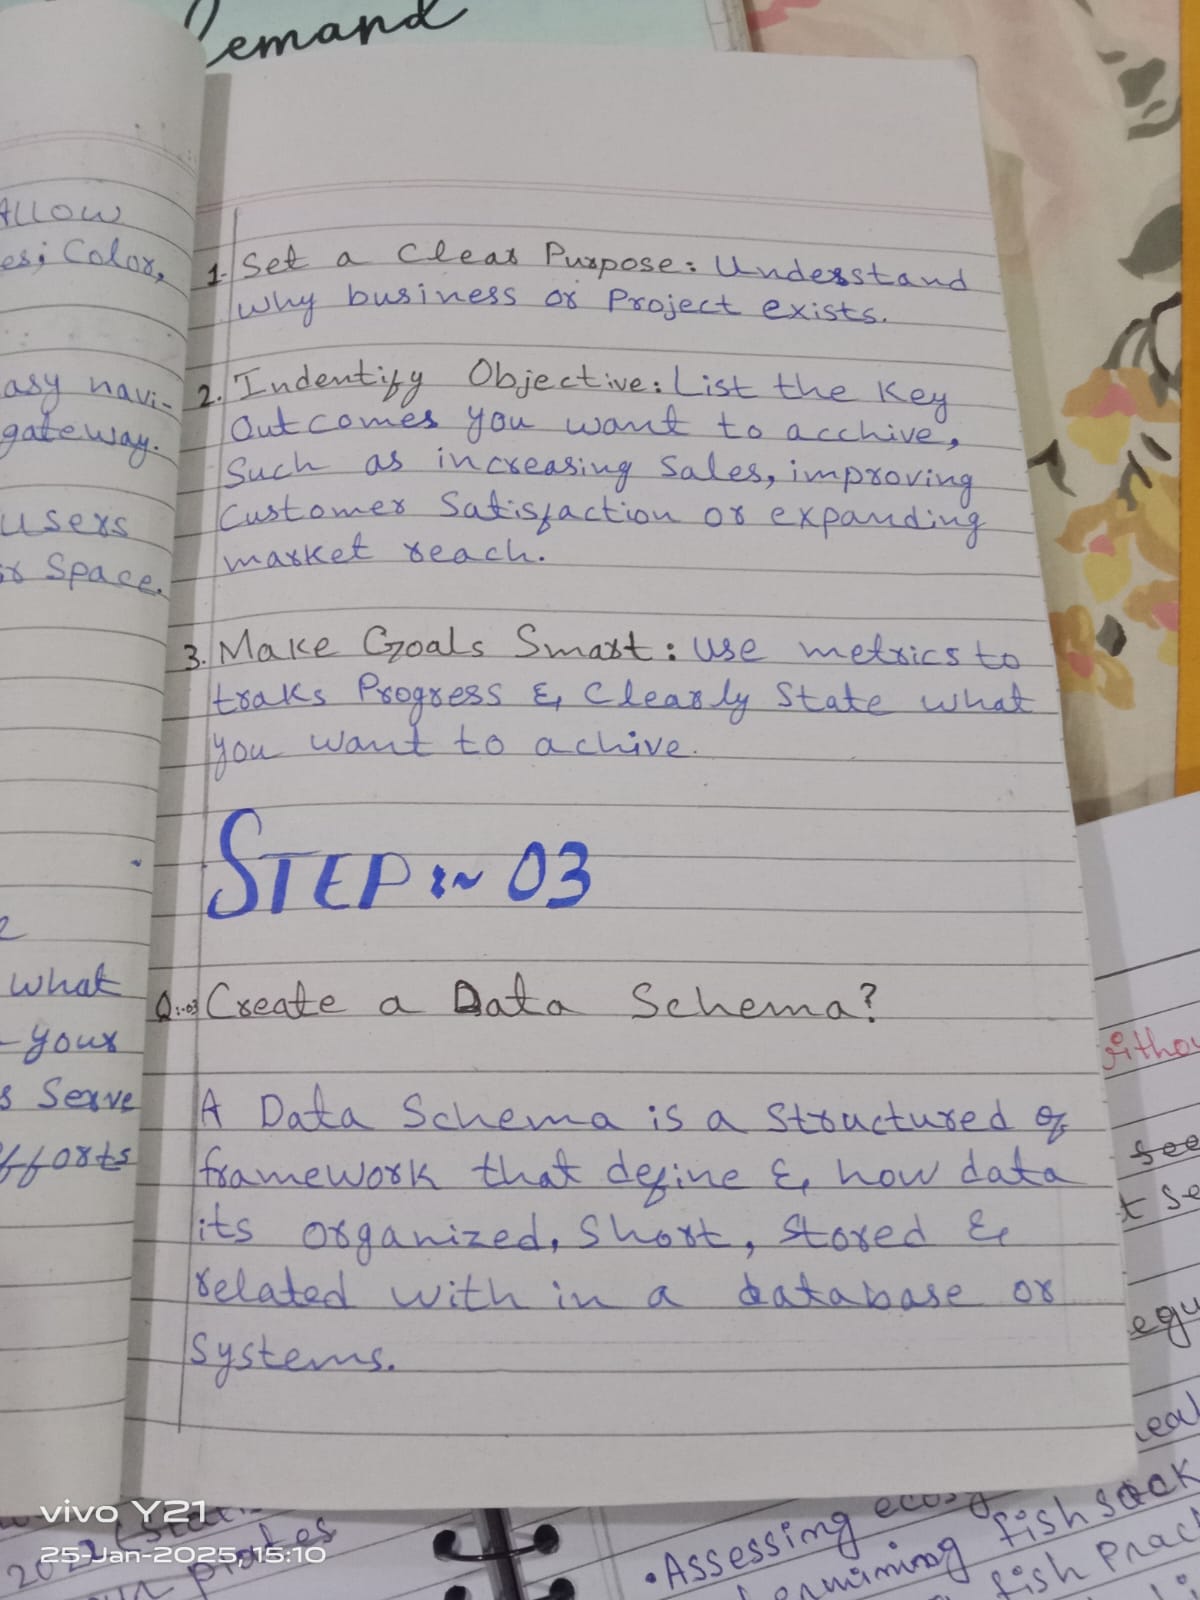 Demand
ALLOW
es; Color,
asy navi-
gateway.
users
or Space.
what
- your
s Serve
fforts
1. Set a Clear Purpose: Understand
why business or Project exists.
2. Indentify Objective: List the Key
Outcomes you want to acchive,
Such as increasing Sales, improving
Customer Satisfaction or expanding
market reach.
3. Make Goals Smart: Use metrics to
traks Progress & Clearly State what
you want to achive.
STEP :~ 03
Q:-03 Create a Data Schema?
A Data Schema is a Structured of
framework that define & how data
its organized, Short, Stored &
related with in a database or
Systems.
see
t se
egu
• Assessing ecosy
fish stock
fish Prac
vivo Y21
25-Jan-2025, 15:10